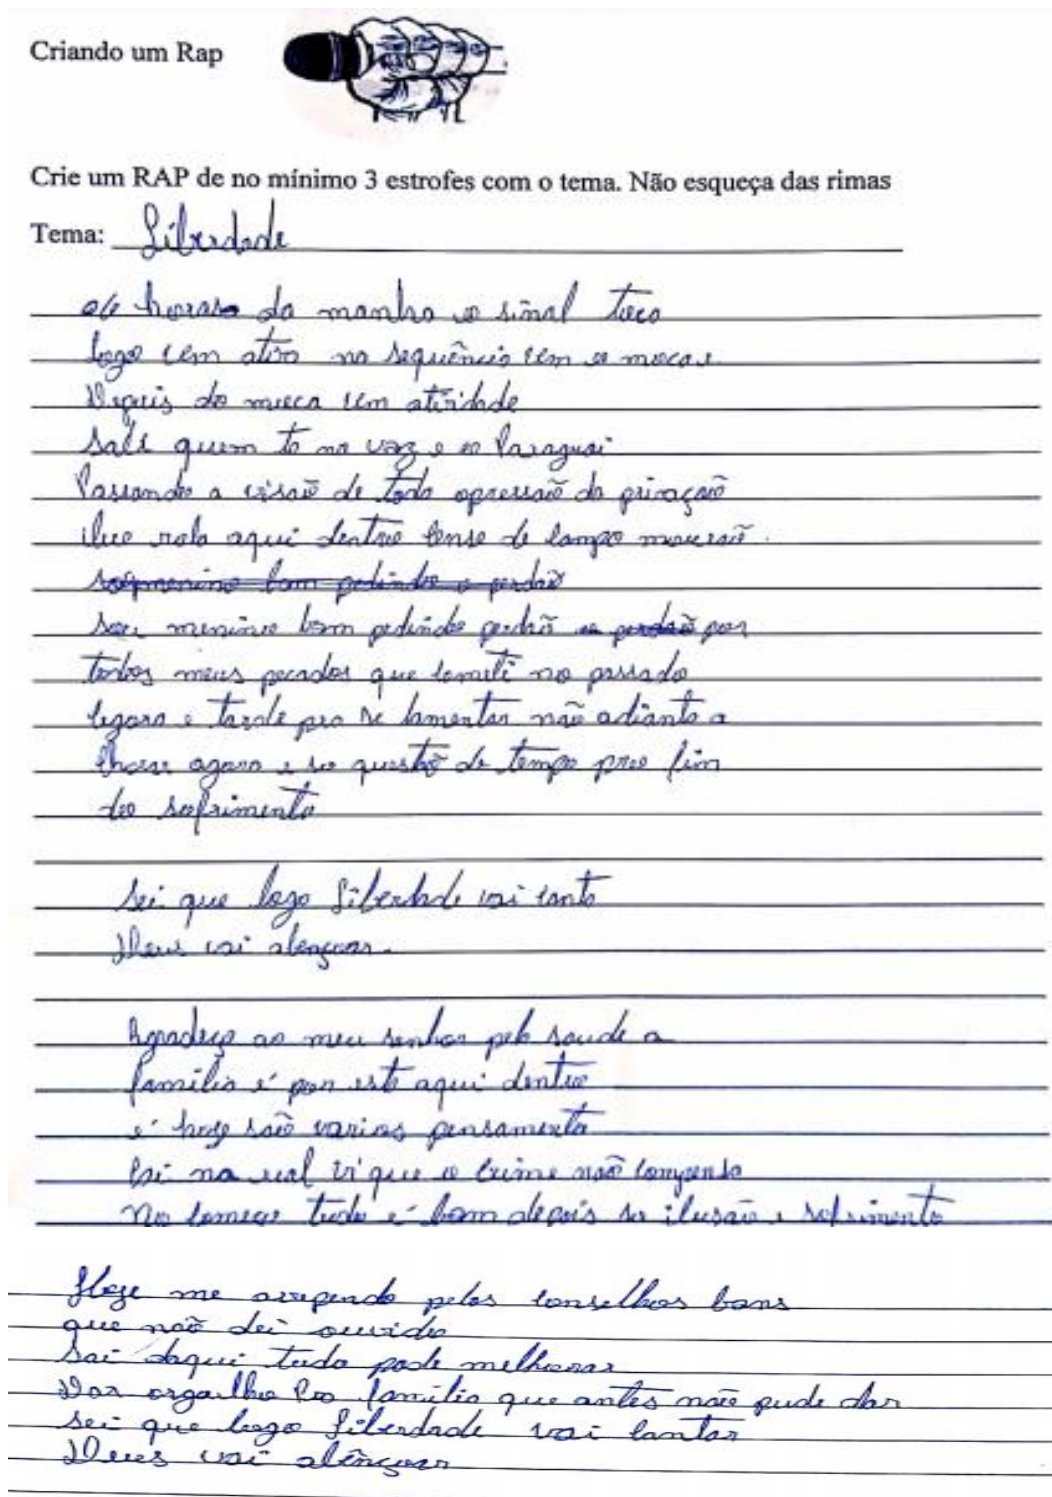 Criando um Rap
Crie um RAP de no mínimo 3 estrofes com o tema. Não esqueça das rimas
Tema: Liberdade
06 horas da manha o sinal toco
logo vem na sequência vem o
Depois do vem atividade
Salve quem ta na voz e o Paraguai
Passando a visão de toda opressão da privação
Que rola aqui dentro
sou menino bom pedindo o perdão
sou menino bom pedindo perdão o perdão por
todos meus pecados que comiti no passado
agora e tarde pra se lamentar não adianta a
chorar agora e so questão de tempo pro fim
do sofrimento
Sei que logo Liberdade vai canta
Deus vai abençoar.
Agradeço ao meu senhor pela saude a
familia é por esta aqui dentro
é hoje são varios pensamento
Cai na real vi que o crime não compensa
No começo tudo é bom depois so ilusão e sofrimento
Hoje me arrependo pelos conselhos bons
que não dei ouvido
Sai daqui tudo pode melhorar
Dar orgulho Pra familia que antes não pude dar
sei que logo Liberdade vai cantar
Deus vai abençoar